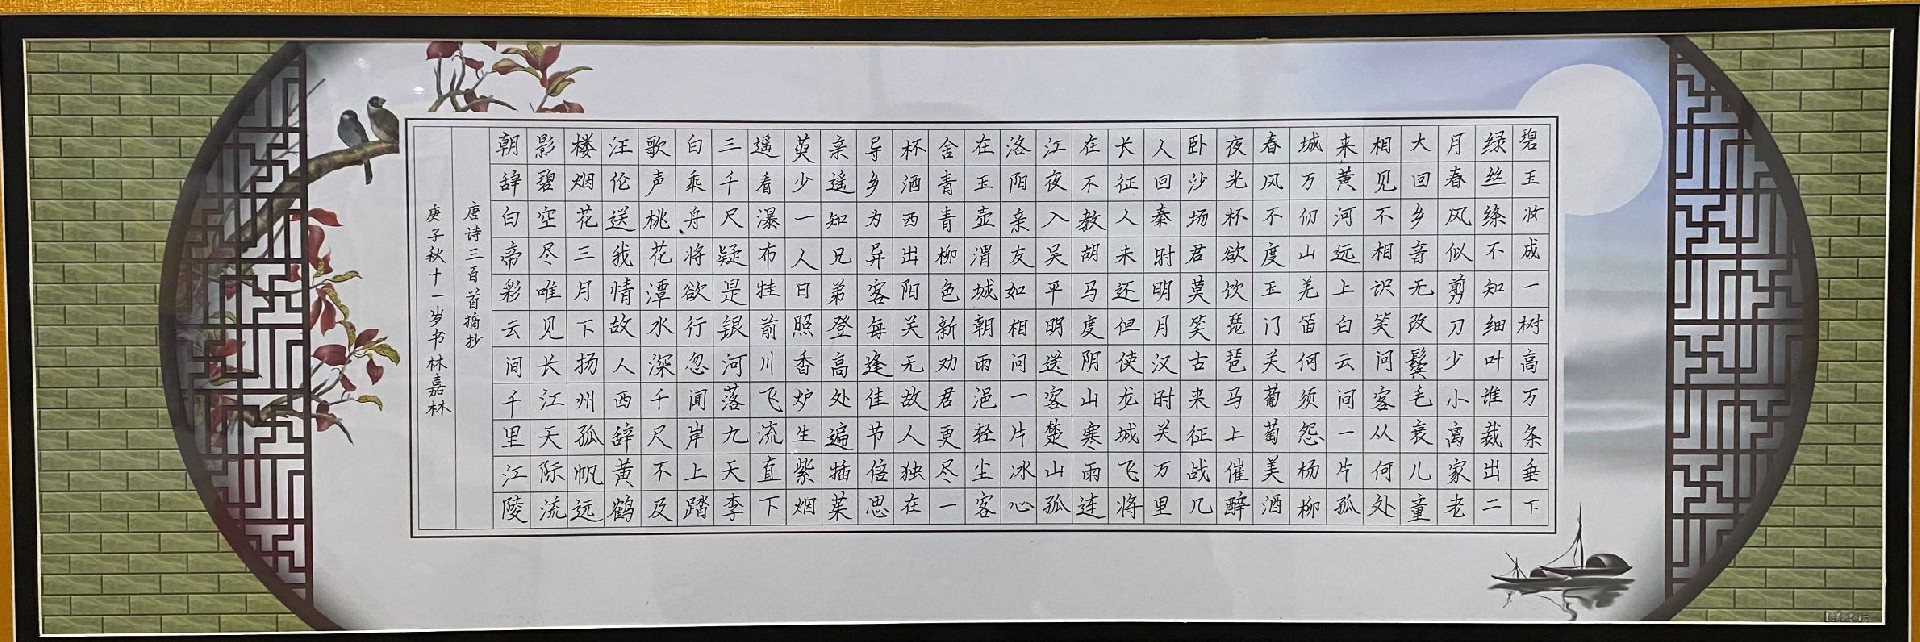 碧玉妆成一树高万条垂下
绿丝绦不知细叶谁裁出二
月春风似剪刀少小离家老
大回乡音无改鬓毛衰儿童
相见不相识笑问客从何处
来黄河远上白云间一片孤
城万仞山羌笛何须怨杨柳
春风不度玉门关葡萄美酒
夜光杯欲饮琵琶马上催醉
卧沙场君莫笑古来征战几
人回秦时明月汉时关万里
长征人未还但使龙城飞将
在不教胡马度阴山寒雨连
江夜入吴平明送客楚山孤
洛阳亲友如相问一片冰心
在玉壶渭城朝雨浥轻尘客
舍青青柳色新劝君更尽一
杯酒西出阳关无故人独在
异乡为异客每逢佳节倍思
亲遥知兄弟登高处遍插茱
萸少一人日照香炉生紫烟
遥看瀑布挂前川飞流直下
三千尺疑是银河落九天李
白乘舟将欲行忽闻岸上踏
歌声桃花潭水深千尺不及
汪伦送我情故人西辞黄鹤
楼烟花三月下扬州孤帆远
影碧空尽唯见长江天际流
朝辞白帝彩云间千里江陵
唐诗三百首摘抄
庚子秋十一岁书林嘉林